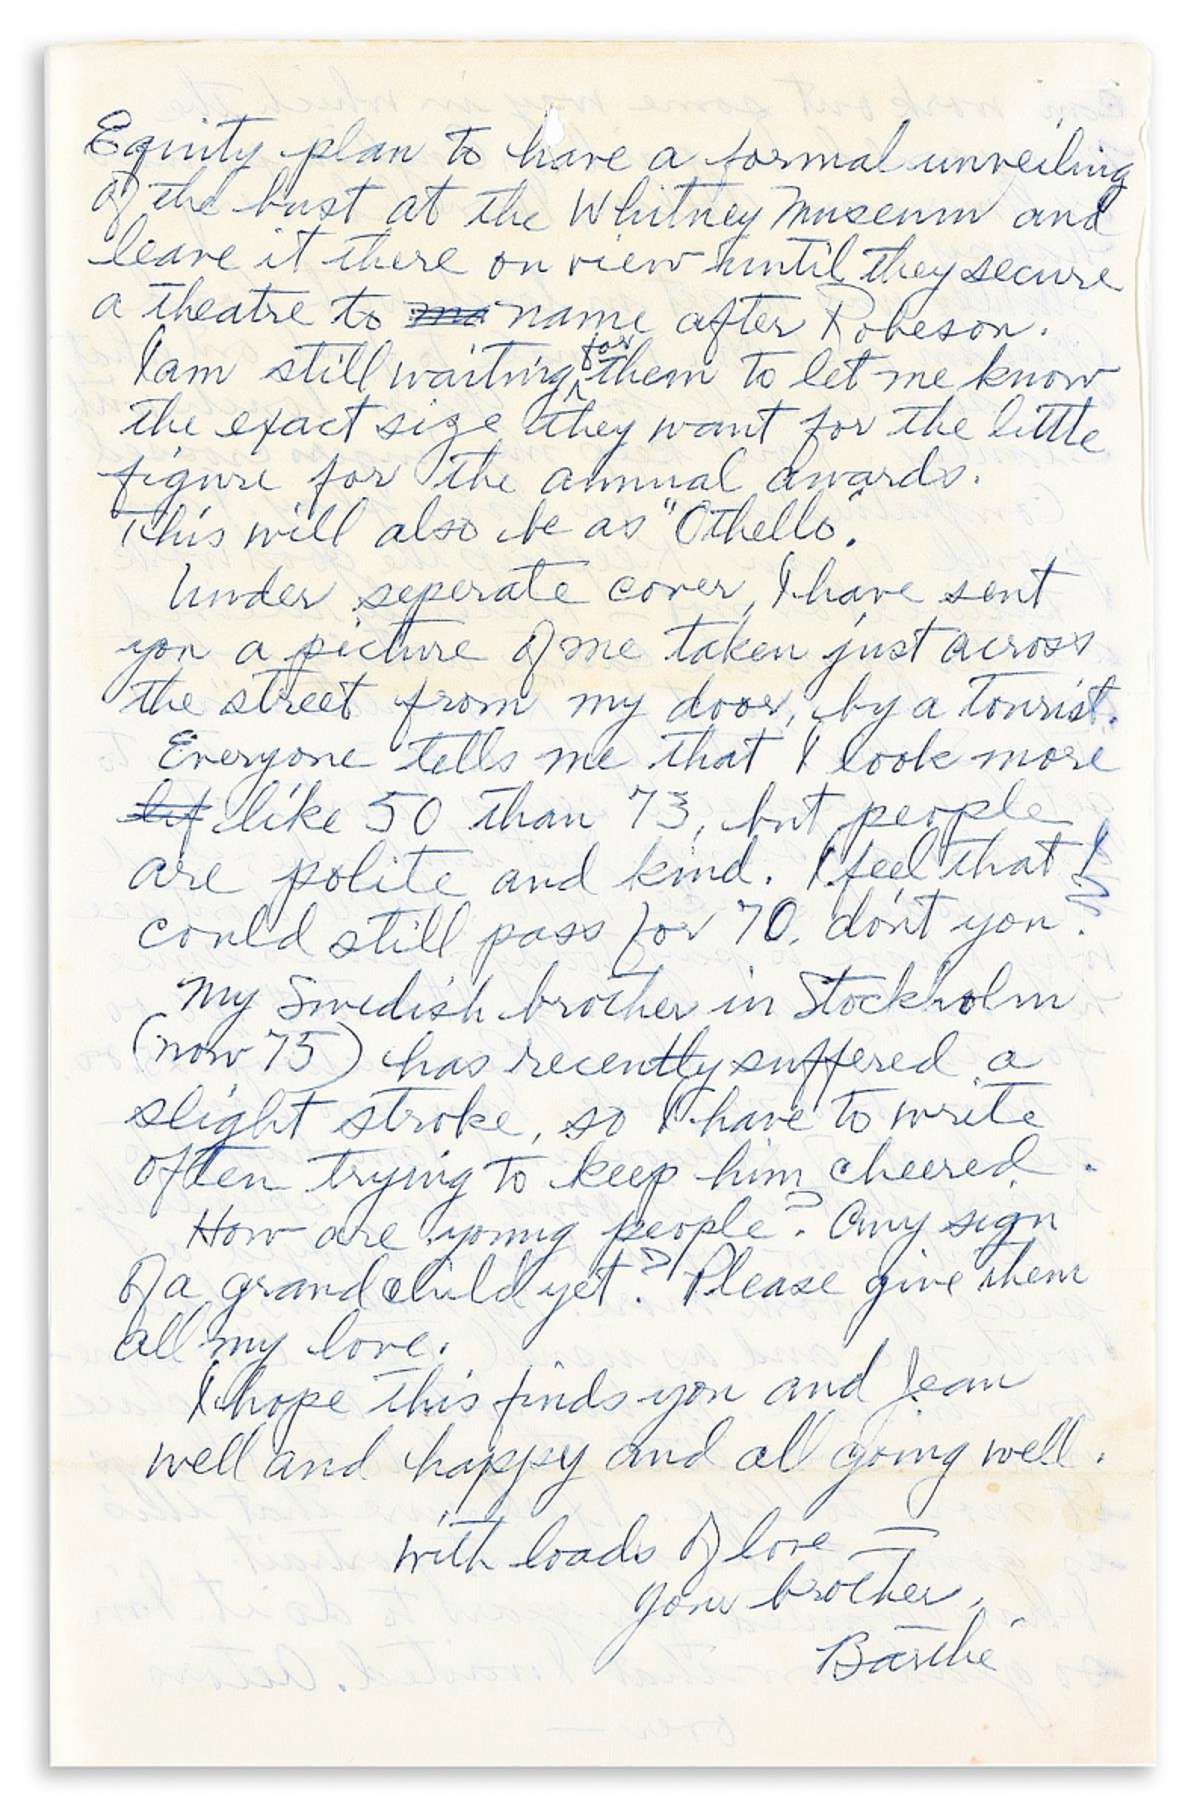 Equity plan to have a formal unveiling
of the bust at the Whitney Museum and
leave it there on view until they secure
a theatre to name after Robeson.
I am still waiting for them to let me know
the exact size they want for the little
figure for the annual awards.
This will also be as "Othello".
Under seperate cover, I have sent
you a picture of me taken just across
the street from my door, by a tourist.
Everyone tells me that I look more
like 50 than 73, but people
are polite and kind. I feel that I
could still pass for 70, don't you?
My Swedish brother in Stockholm
(now 75) has recently suffered a
slight stroke, so I have to write
often trying to keep him cheered.
How are young people? Any sign
of a grandchild yet? Please give them
all my love.
I hope this finds you and Jean
well and happy and all going well.
With loads of love —
Your brother,
Barthé